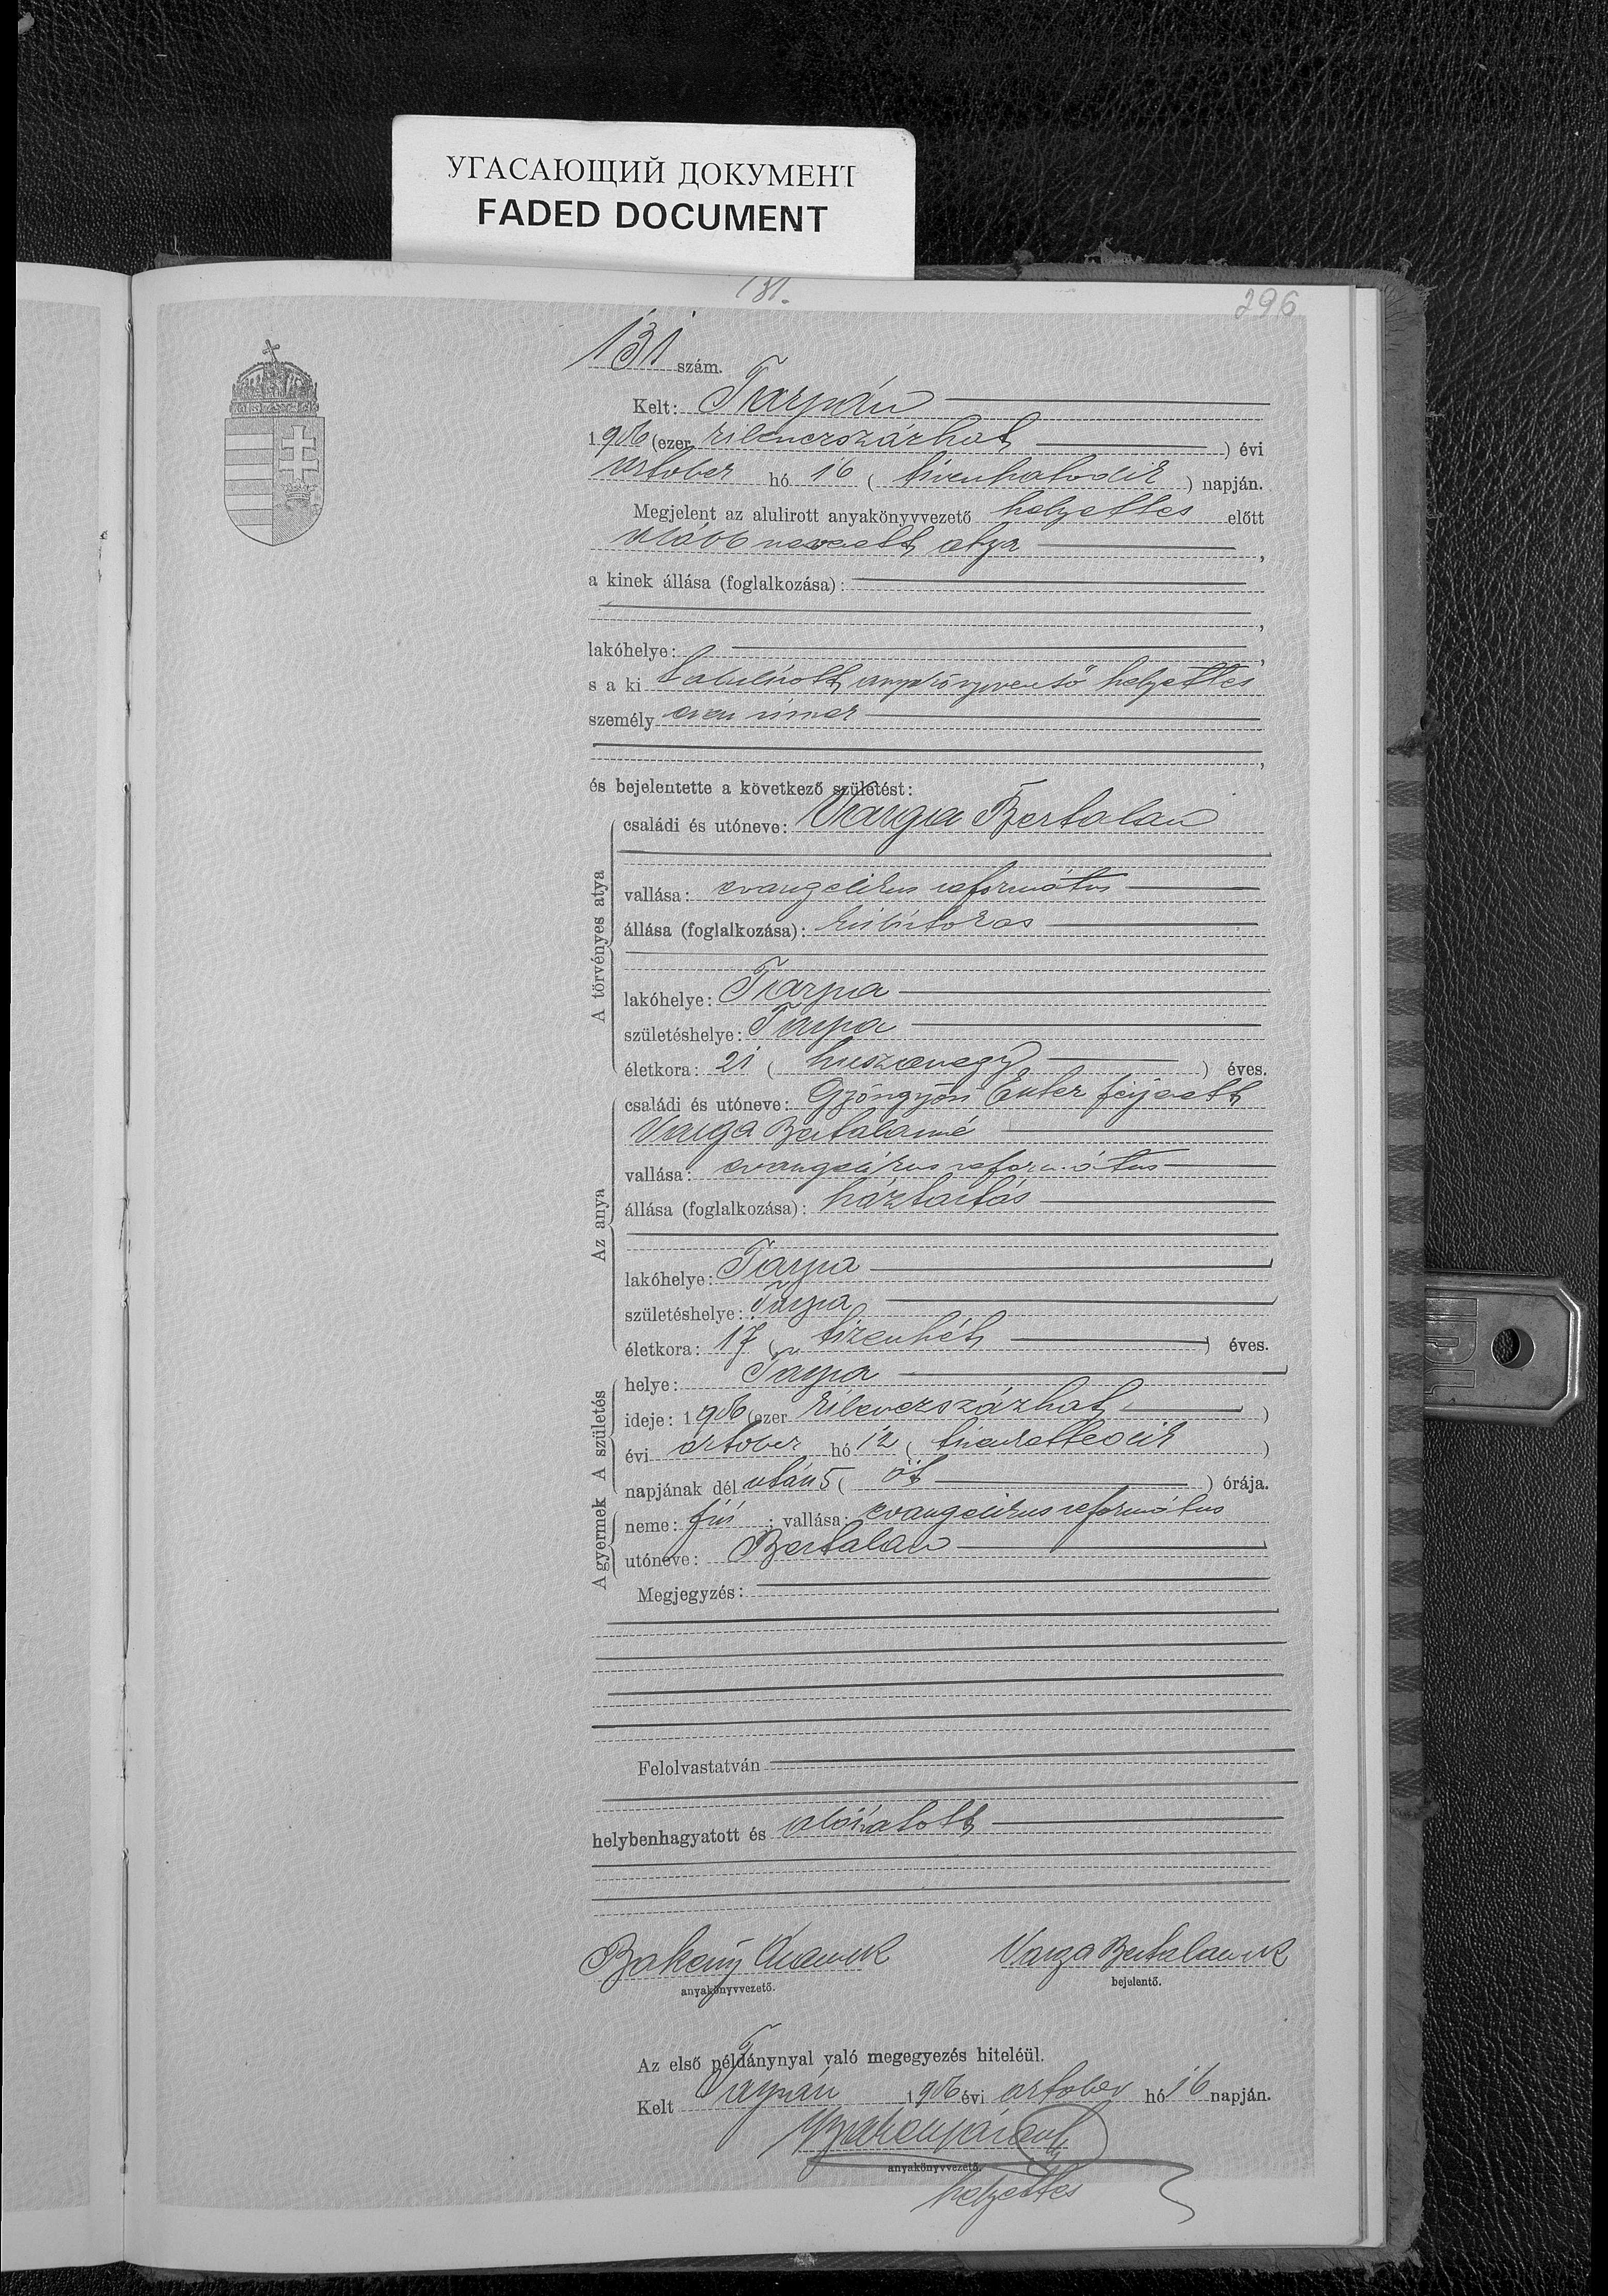 УГАСАЮЩИЙ ДОКУМЕНТ
FADED DOCUMENT
131.
296
131 szám.
Kelt: Tarpán
1906 (ezer kilenczszázhat) évi
october hó 16 (tizenhatodik) napján.
Megjelent az alulirott anyakönyvvezető helyettes előtt
alább nevezett atya,
a kinek állása (foglalkozása):
,
lakóhelye: ,
s a ki alulirott anyakönyvvezető helyettes
személyesen ismer
,
és bejelentette a következő születést:
A törvényes atya
családi és utóneve: Varga Bertalan
vallása: evangelikus református
állása (foglalkozása): kisbirtokos
lakóhelye: Tarpa
születéshelye: Tarpa
életkora: 21 (huszonegy) éves.
Az anya
családi és utóneve: Gyöngyösi Eszter férjezett
Varga Bertalanné
vallása: evangelikus református
állása (foglalkozása): háztartás
lakóhelye: Tarpa
születéshelye: Tarpa
életkora: 17 (tizenhét) éves.
A születés
helye: Tarpa
ideje: 1906 (ezer kilenczszázhat)
évi october hó 12 (tizenkettedik)
napjának dél után 5 (öt) órája.
A gyermek
neme: fiú; vallása: evangelikus református
utóneve: Bertalan
Megjegyzés:
Felolvastatván
helybenhagyatott és aláiratott
anyakönyvvezető.
Varga Bertalan sk
bejelentő.
Az első példánynyal való megegyezés hiteléül.
Kelt Tarpán 1906 évi october hó 16 napján.
anyakönyvvezető.
helyettes